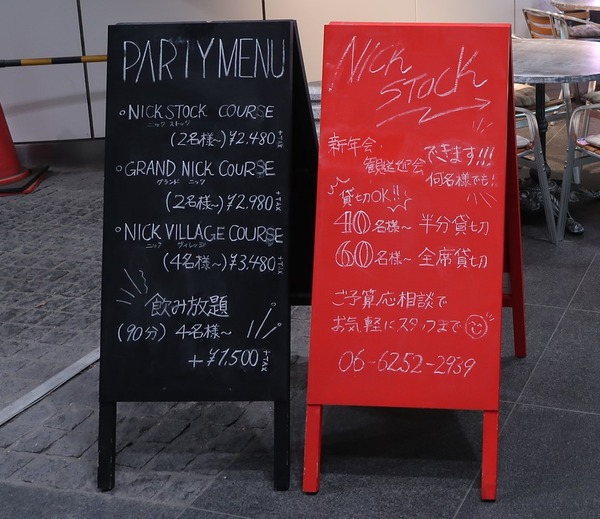 PARTY MENU
・NICKSTOCK COURSE
ニック ストック
(2名様~)¥2.480
・GRAND NICK COURSE
グランド ニック
(2名様~)¥2.980
・NICK VILLAGE COURSE
ニック ヴィレッジ
(4名様~)¥3.480
飲み放題
(90分) 4名様~
+¥1,500
NICK
STOCK
新年会・
歓送迎会 できます!!!
何名様でも!
貸切OK!!
40名様~ 半分貸切
60名様~ 全席貸切
ご予算応相談で
お気軽にスタッフまで
06-6252-2939